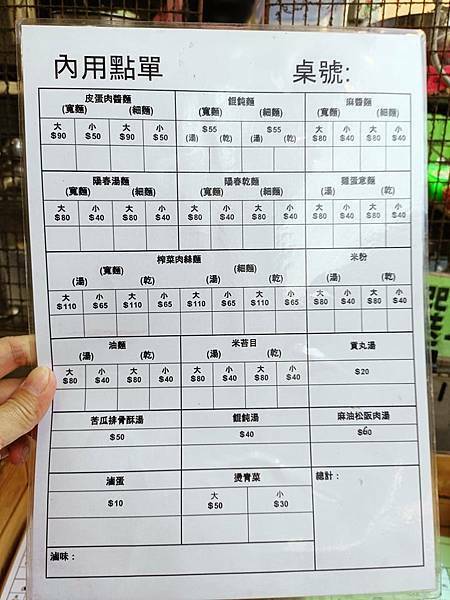 內用點單 桌號:
皮蛋肉醬麵 餛飩麵 麻醬麵
(寬麵) (細麵) (寬麵) (細麵) (寬麵) (細麵)
大 小 大 小 $55 $55 大 小 大 小
$90 $50 $90 $50 (湯) (乾) (湯) (乾) $80 $40 $80 $40
陽春湯麵 陽春乾麵 雞蛋意麵
(寬麵) (細麵) (寬麵) (細麵) (湯) (乾)
大 小 大 小 大 小 大 小 大 小 大 小
$80 $40 $80 $40 $80 $40 $80 $40 $80 $40 $80 $40
榨菜肉絲麵 米粉
(寬麵) (細麵)
(湯) (乾) (湯) (乾) (湯) (乾)
大 小 大 小 大 小 大 小 大 小 大 小
$110 $65 $110 $65 $110 $65 $110 $65 $80 $40 $80 $40
油麵 米苔目 貢丸湯
(湯) (乾) (湯) (乾)
大 小 大 小 大 小 大 小 $20
$80 $40 $80 $40 $80 $40 $80 $40
苦瓜排骨酥湯 餛飩湯 麻油松阪肉湯
$50 $40 $60
滷蛋 燙青菜 總計：
$10 大 小
$50 $30
滷味：